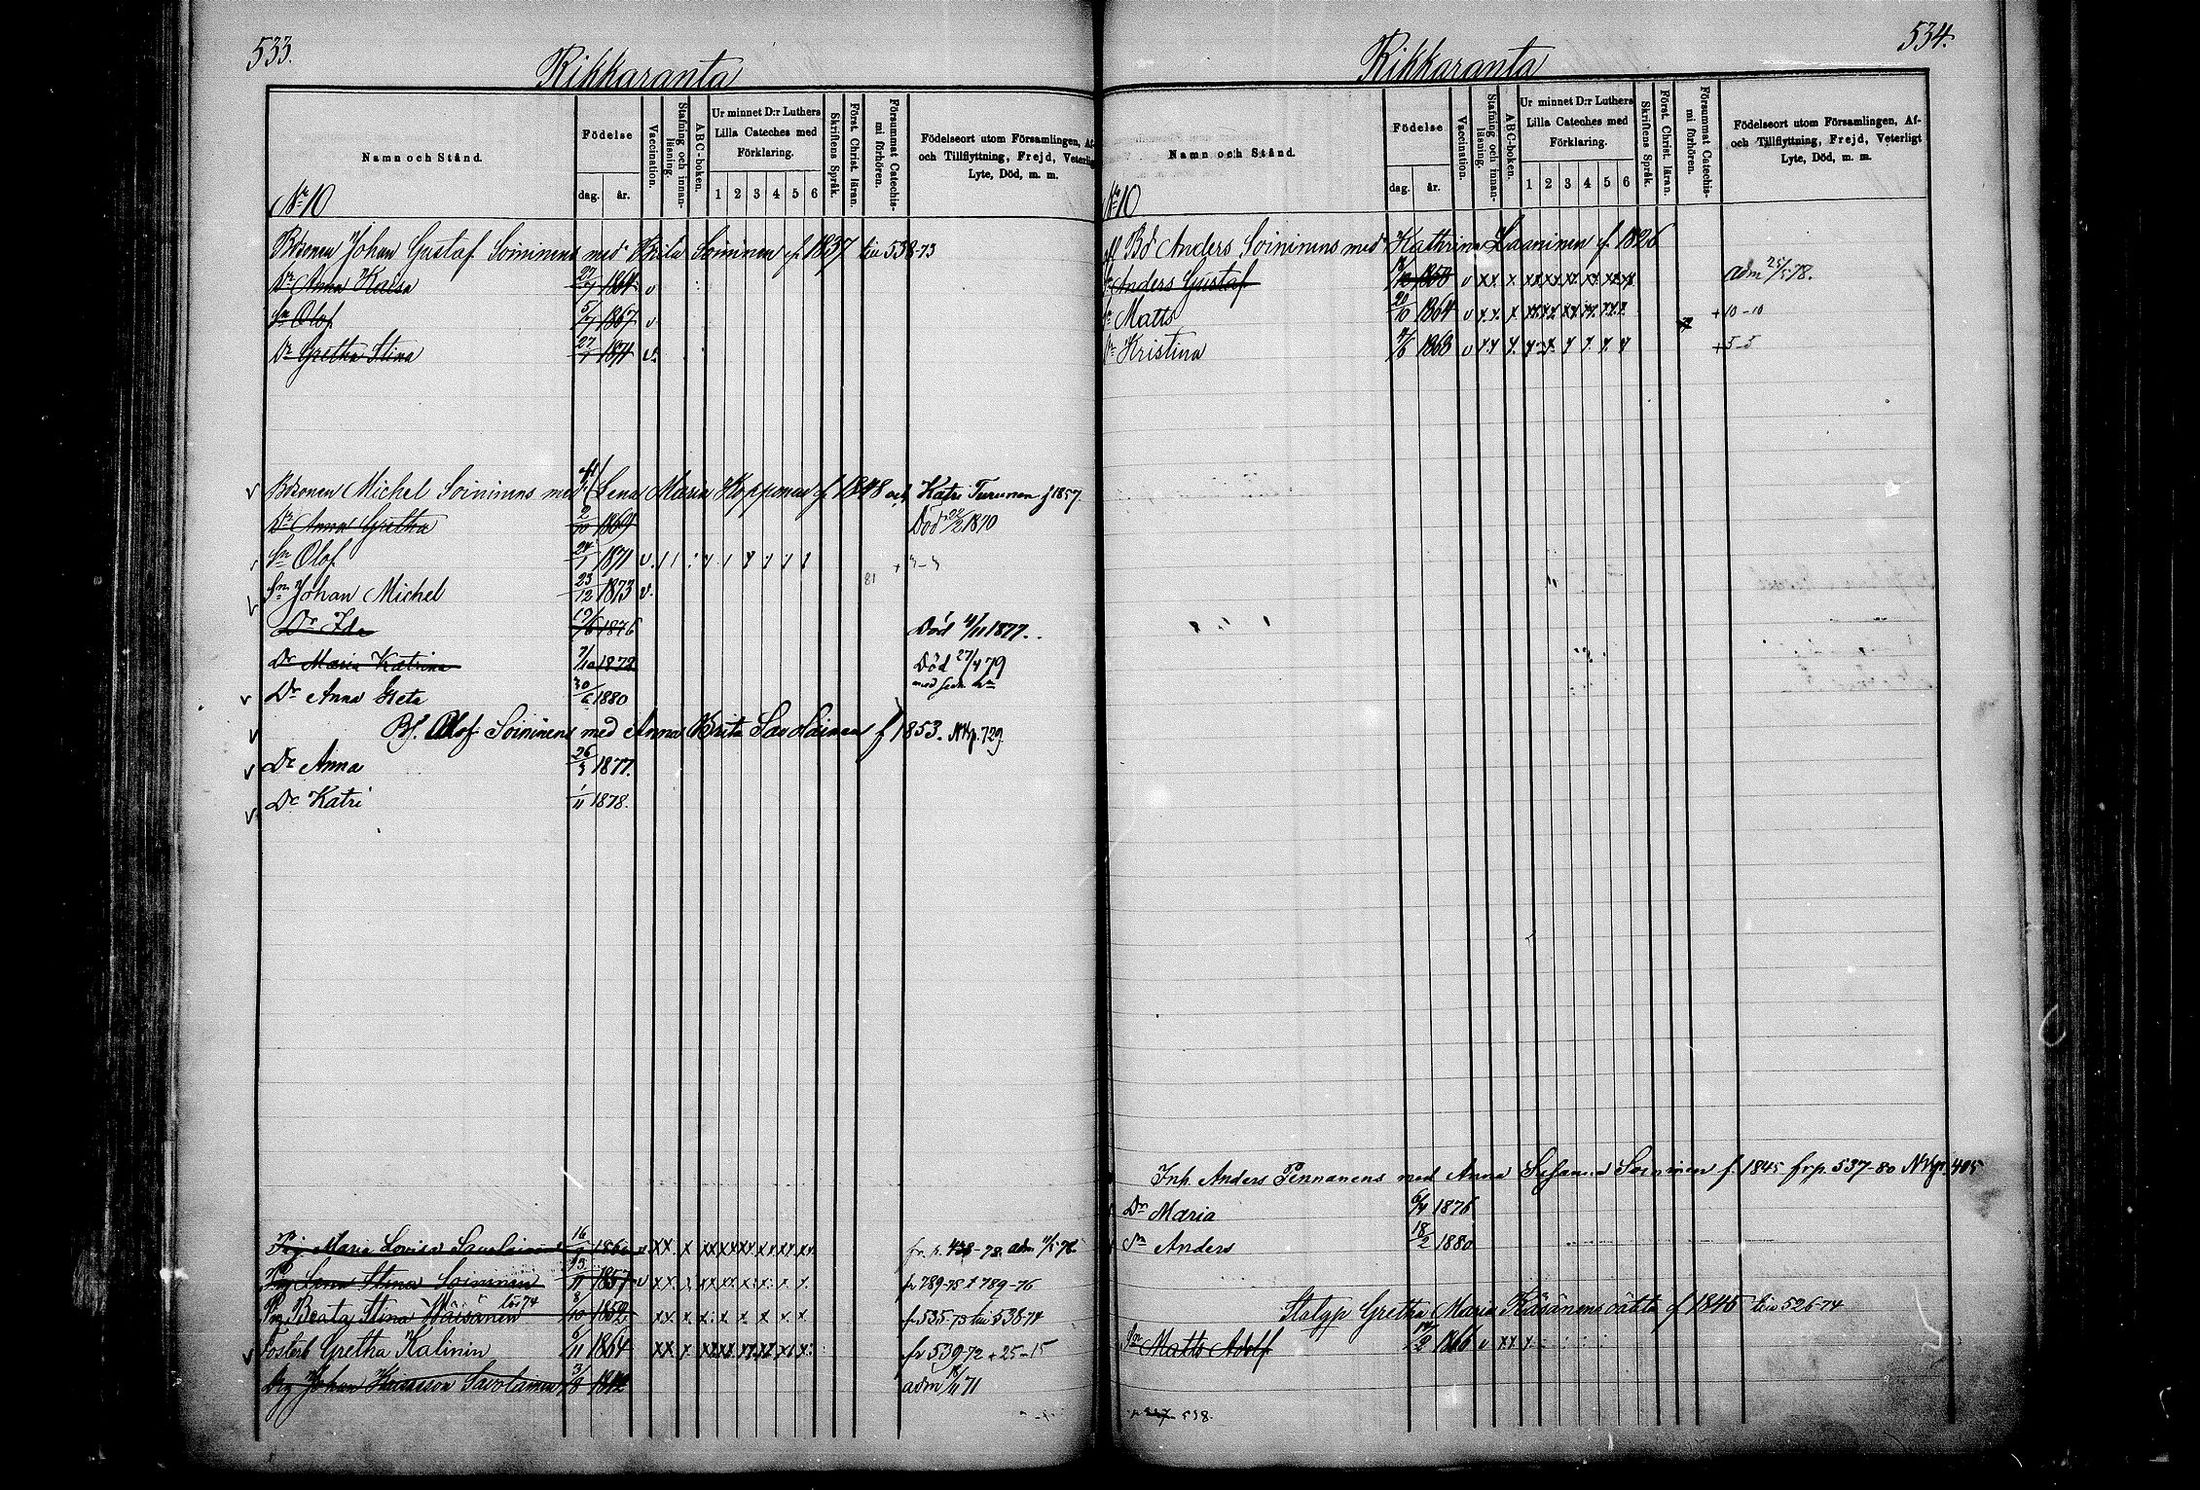 533.
Rikkaranta
Namn och Stånd.
Födelse
dag. år.
Vaccination.
Stafning och innan-läsning.
ABC-boken.
Ur minnet D:r Luthers
Lilla Cateches med
Förklaring.
1 2 3 4 5 6
Skriftens Språk.
Först. Christ. läran.
Försummat Catechis-mi förhören.
Födelseort utom Församlingen, Af-
och Tillflyttning, Frejd, Veterligt
Lyte, Död, m. m.
No 10
Bdsonen Johan Gustaf Soininens med Brita Soininen f. 1837 till 538-73
Dr Anna Kaisa 27/7 1864 v
Sn Olof 5/7 1867 v
Dr Gretha Stina 27/7 1871 v.
Bdsonen Michel Soininens med Lena Maria Kopponen f 1848 och Katri Turunen f 1857.
Dr Anna Gretha 2/10 1869 Död 22/2 1870
Sn Olof 24/1 1871
Sn Johan Michel 23/12 1873 v. 81
Dr Ida 1876 Död 4/11 1877.
Dr Maria Katrina 7/10 1878 Död 27/4 79
Dr Anna Greta 30/6 1880
Bf. Olof Soininens med Anna Brita Savolainen f 1853. NKp. 729
Dr Anna 26/3 1877.
Dr Katri 1/11 1878.
Pig Maria Lovisa Savolainen 16 186 fr. p. 438-78. adm
Pig Lena Stina Soininen 1857 fr 789-75 t 789-76
Pig Beata Stina Wäisänen till 74 8/10 1852 fr 535-73 till 536-74
Fosterb Gretha Kalinin 6/11 1864 fr 539-72 + 25-15
Drg Johan Savolainen 3/8 adm 71
534.
Rikkaranta
Namn och Stånd.
Födelse
dag. år.
Vaccination.
Stafning och innan-läsning.
ABC-boken.
Ur minnet D:r Luthers
Lilla Cateches med
Förklaring.
1 2 3 4 5 6
Skriftens Språk.
Först. Christ. läran.
Försummat Catechis-mi förhören.
Födelseort utom Församlingen, Af-
och Tillflyttning, Frejd, Veterligt
Lyte, Död, m. m.
No 10
afl Bd Anders Soininens med Kathrina Laaninen f. 1826
Sn Anders Gustaf adm 25/5 78.
Sn Matts 20/10 1864 + 10-10
Dr Kristina 7/6 1868 + 5-5
Inh. Anders Pennanens med Anna Susanna Soininen f. 1845 frp. 537-80 NKp. 405
Dr Maria 6/4 1876
Sn Anders 18/2 1880
Statyp Gretha Maria Käsänens oäkta f 1845 till 526-74
Sn Matts Adolf 1866 v xx x
538.